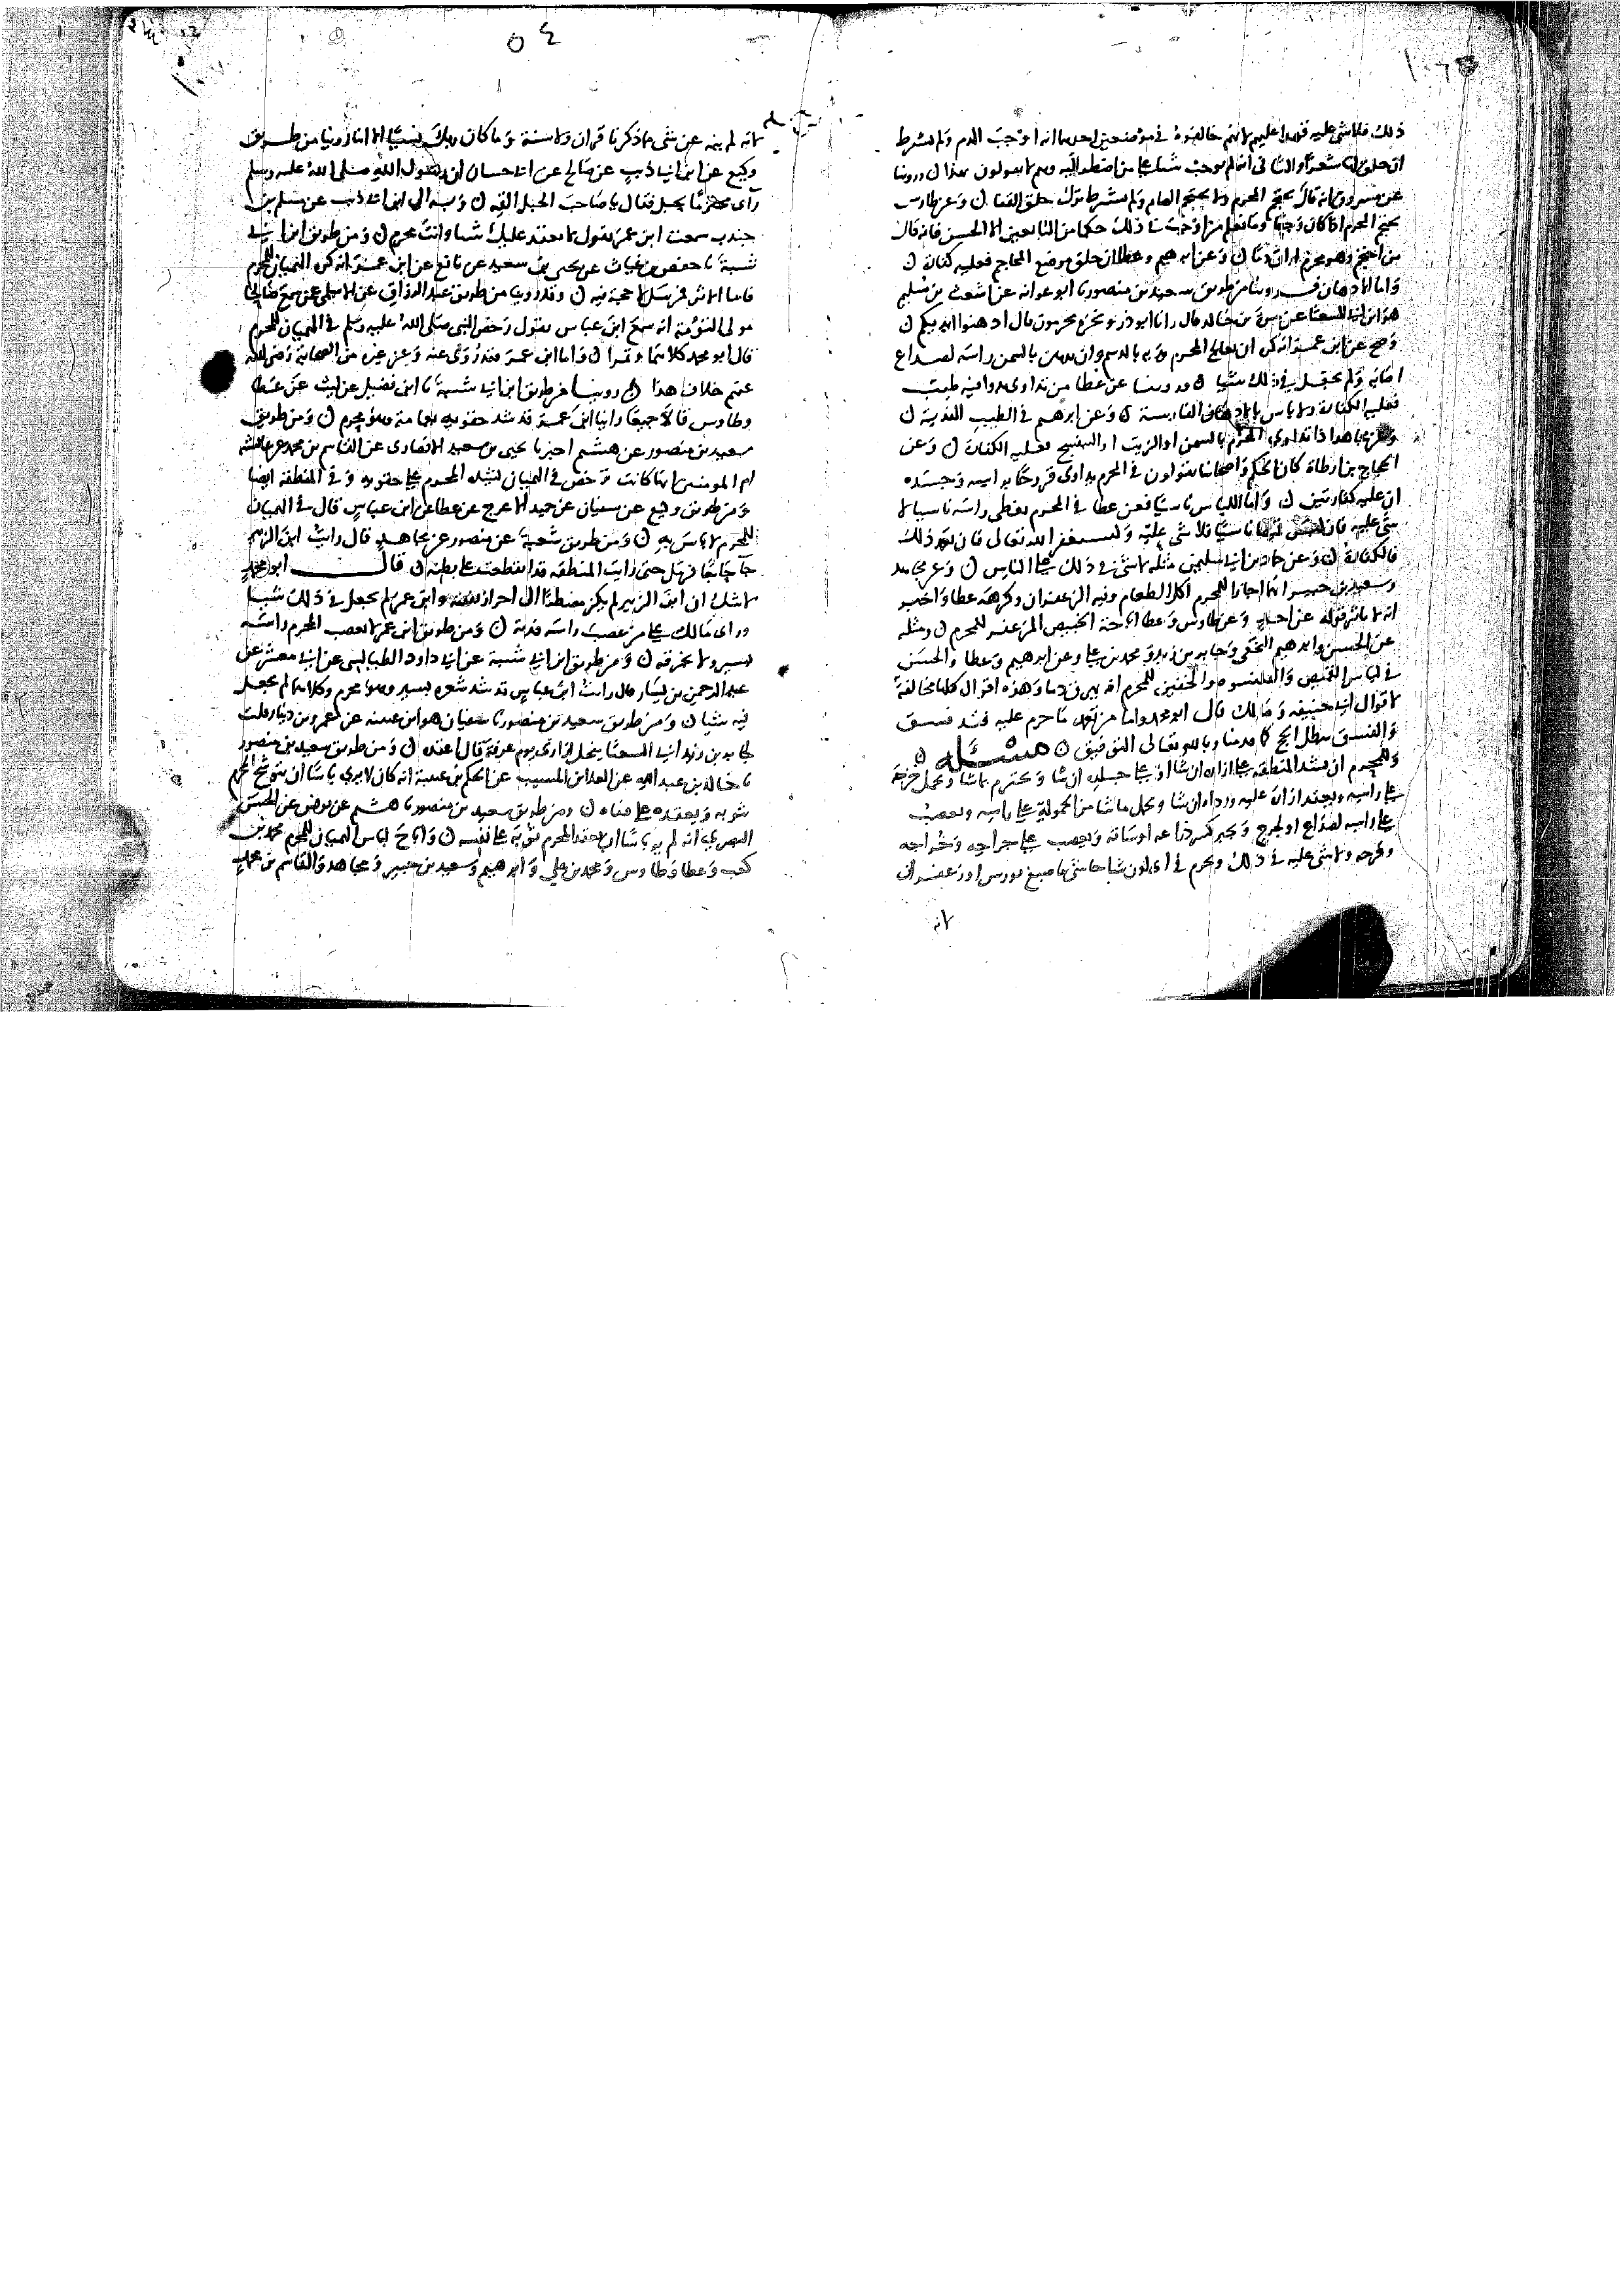 ذلك فلا شي عليه فهذا عليهم لانهم خالفوه في موضعين احدهما انه اوجب الدم ولم يشرط
ان حلق لها شعرا والثاني انه لم يوجب شيئا علي من اضطر اليه وهم لا يقولون بهذا ن وروينا
عن مسروق انه قال يحتجم المحرم ولا يحتجم الصايم ولم يشترط ترك حلق القفا ن وعن طاوس
يحتجم المحرم اذا كان وجعا وما نعلم من اوجب في ذلك حكما من التابعين الا الحسن فانه قال
من احتجم وهو محرم اراق دما ن وعن ابرهيم وعطا ان حلق موضع المحاجم فعليه كفارة ن
واما الادهان فروينا من طريق سعيد بن منصور نا ابو عوانه عن اشعث بن سليم
هو ابن ابي الشعثا عن مرة بن خالد قال رانا ابو ذر ونحن محرمون فقال ادهنوا ايديكم ن
وصح عن ابن عمر انه كره ان يعالج المحرم يديه بالدسم وان يدهن بالسمن راسه لصداع
اصابه ولم يجعل في ذلك شيا ن وروينا عن عطا من تداوى بدوا فيه طيب
فعليه الكفارة ولا باس بالادهان الفارسية ن وعن ابرهيم في الطيب الفدية ن
وعن مجاهد اذا تداوى المحرم بالسمن او الزيت او البنفسج فعليه الكفارة ن وعن
الحجاج بن ارطاة كان الحكم واصحابنا يقولون في المحرم يداوى قروحا براسه وجسده
ان عليه كفارتين ن واما اللباس ناسيا فعن عطا في المحرم يغطى راسه ناسيا لا
شي عليه فان لبس قميصا ناسيا فلا شي عليه وليستغفر الله تعالى فان تعمد ذلك
فالكفارة ن وعن حماد بن ابي سليمن مثله لا شي في ذلك علي الناس ن وعن مجاهد
وسعيد بن جبير انهما اجازا للمحرم اكل الطعام وفيه الزعفران وكرهه عطا واخبر
انه لا ياثر قوله عن احد وعن طاوس وعطا اباحة الخبيص المزعفر للمحرم ن ومثله
عن الحسن وابرهيم النخعي وجابر بن زيد ومحمد بن علي وعن ابرهيم وعطا والحسن
في لباس القميص والقلنسوه والخفين للمحرم انه يهرق دما وهذه اقوال كلها مخالفة
لاقوال ابي حنيفه ومالك قال ابو محمد واما من تعمد ما حرم عليه فقد فسق
والفسق يبطل الحج كما قدمنا وبالله تعالى التوفيق ن مسئلة ن
وللمحرم ان يشد المنطقه علي ازاره ان شا او علي جسده ان شا ويحتزم بما شا ويحمل خرجه
علي راسه ويعقد ازاره عليه ورداه ان شا ويحمل ما شا من الحمولة علي راسه ويعصب
علي راسه لصداع او لجرح ويجبر كسر ذراعه او ساقه ويعصب علي جراحه وخراجه
وقرحه ولا شي عليه في ذلك ويحرم في اي لون شا حاشى ما صبغ بورس او زعفران
لانه
٥٤
لانه لم ينه عن شي مما ذكرنا قران ولا سنة وما كان ربك نسيا الا اننا روينا من طريق
وكيع عن ابن ابي ذيب عن صالح عن ابي حسان ان رسول الله صلى الله عليه وسلم
رآى محرما بحبل فقال يا صاحب الحبل القه ن وبه الى ابن ابي ذيب عن مسلم بن
جندب سمعت ابن عمر يقول لا تعقد عليك شيا وانت محرم ن ومن طريق ابن ابي
شيبة نا حفص بن غياث عن يحيى بن سعيد عن نافع عن ابن عمر انه كره الهميان للمحرم
فاما الاثر فمرسل لا حجة فيه ن وقد روينا من طريق عبد الرزاق عن الاسلمي عمن سمع صالحا
مولى التؤمة انه سمع ابن عباس يقول رخص النبي صلى الله عليه وسلم في الهميان للمحرم
قال ابو محمد كلاهما واما ابن عمر فقد روى عنه وعن غيره من الصحابة رضي الله
عنهم خلاف هذا ن روينا من طريق ابن ابي شيبة نا ابن فضيل عن ليث عن عطا
وطاوس قالا جميعا راينا ابن عمر قد شد حقويه بعمامة وهو محرم ن ومن طريق
سعيد بن منصور عن هشيم اخبرنا يحيى بن سعيد الانصارى عن القاسم بن محمد عن عائشه
ام المومنين انها كانت ترخص في الهميان يشده المحرم علي حقويه وفي المنطقة ايضا
ومن طريق وكيع عن سفيان عن حميد الاعرج عن عطا عن ابن عباس قال في الهميان
للمحرم لا باس به ن ومن طريق شعبة عن منصور عن مجاهد قال رايت ابن الزبير
جا حاجا فرمل حتى رايت المنطقه قد انقطعت علي بطنه ن قال ابو محمد
لا شك ان ابن الزبير لم يكن مضطرا الى احراز نفقته وابن عمر لم يجعل في ذلك شيا
وراى مالك علي من عصب راسه فدية ن ومن طريق ابن عمر لا يعصب المحرم راسه
بسير ولا بخرقه ن ومن طريق ابن ابي شيبة عن ابي داود الطيالسي عن ابي معشر عن
عبد الرحمن بن يسار قال رايت ابن عباس قد شد شعره بسير وهو محرم وكلاهما لم يجعل
فيه شيا ن ومن طريق سعيد بن منصور نا سفيان هو ابن عيينه عن عمرو بن دينار قلت
لجابر بن زيد ابي الشعثا ينحل ازارى يوم عرفة قال اعقده ن ومن طريق سعيد بن منصور
نا خالد بن عبد الله عن العلا بن المسيب عن الحكم بن عتيبة انه كان لا يرى باسا ان يتوشح المحرم
بثوبه ويعقده علي قفاه ن ومن طريق سعيد بن منصور نا هشيم عن يونس عن الحسن
البصري انه لم ير باسا ان يعقد المحرم ثوبه علي نفسه ن واباح لباس الهميان للمحرم محمد بن
كعب وعطا وطاوس ومحمد بن علي وابرهيم وسعيد بن جبير ومجاهد والقاسم بن محمد